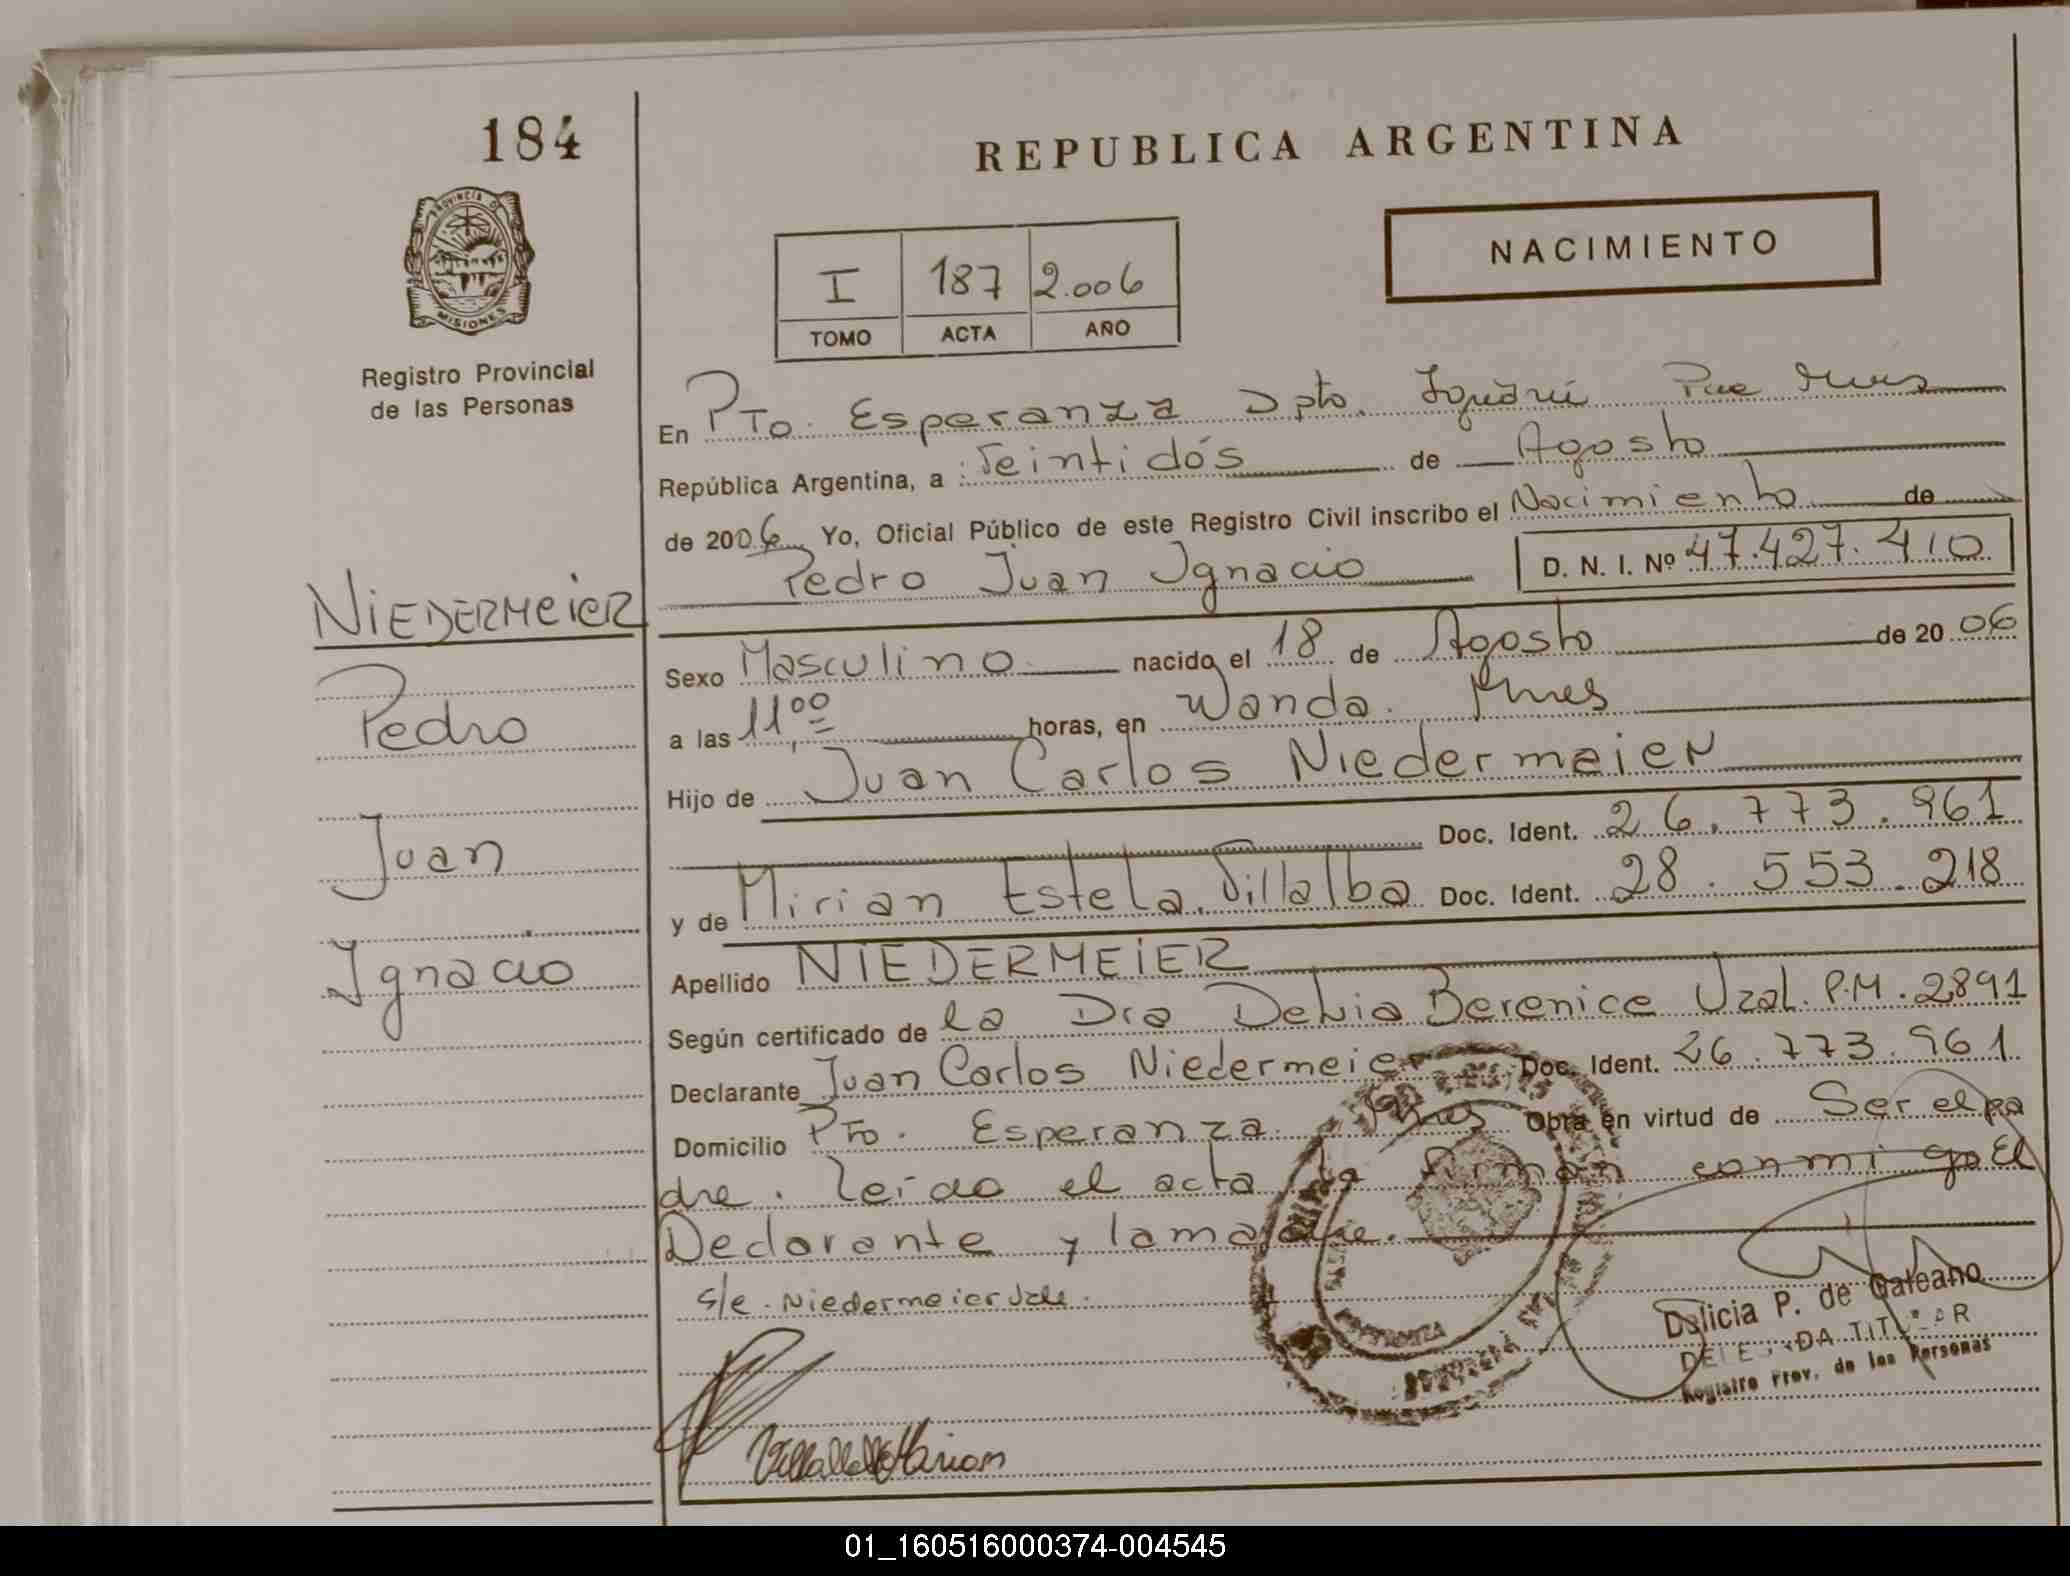 184
REPUBLICA ARGENTINA
PROVINCIA DE
MISIONES
Registro Provincial
de las Personas
I 187 2.006
TOMO ACTA AÑO
NACIMIENTO
En Pto. Esperanza Dpto. Iguazú Pcia Mnes
República Argentina, a Veintidós de Agosto
de 2006 Yo, Oficial Público de este Registro Civil inscribo el Nacimiento de
Pedro Juan Ignacio D. N. I. Nº 47.427.410
NIEDERMEIER
Pedro
Juan
Ignacio
Sexo Masculino nacido el 18 de Agosto de 20 06
a las 11 00 horas, en Wanda. Mnes
Hijo de Juan Carlos Niedermaier
Doc. Ident. 26.773.961
y de Mirian Estela Villalba Doc. Ident. 28.553.218
Apellido NIEDERMEIER
Según certificado de la Dra Delvia Berenice Uzal. P.M. 2891
Declarante Juan Carlos Niedermeier Doc. Ident. 26.773.961
Domicilio Pto. Esperanza Mnes Obra en virtud de Ser el pa
dre. Leido el acta la firman conmigo El
Declarante y la madre.
s/e. Niedermeier Vale.
Villalba Mirian
Delicia P. de Galeano
DELEGADA TITULAR
Registro Prov. de las Personas
01_160516000374-004545